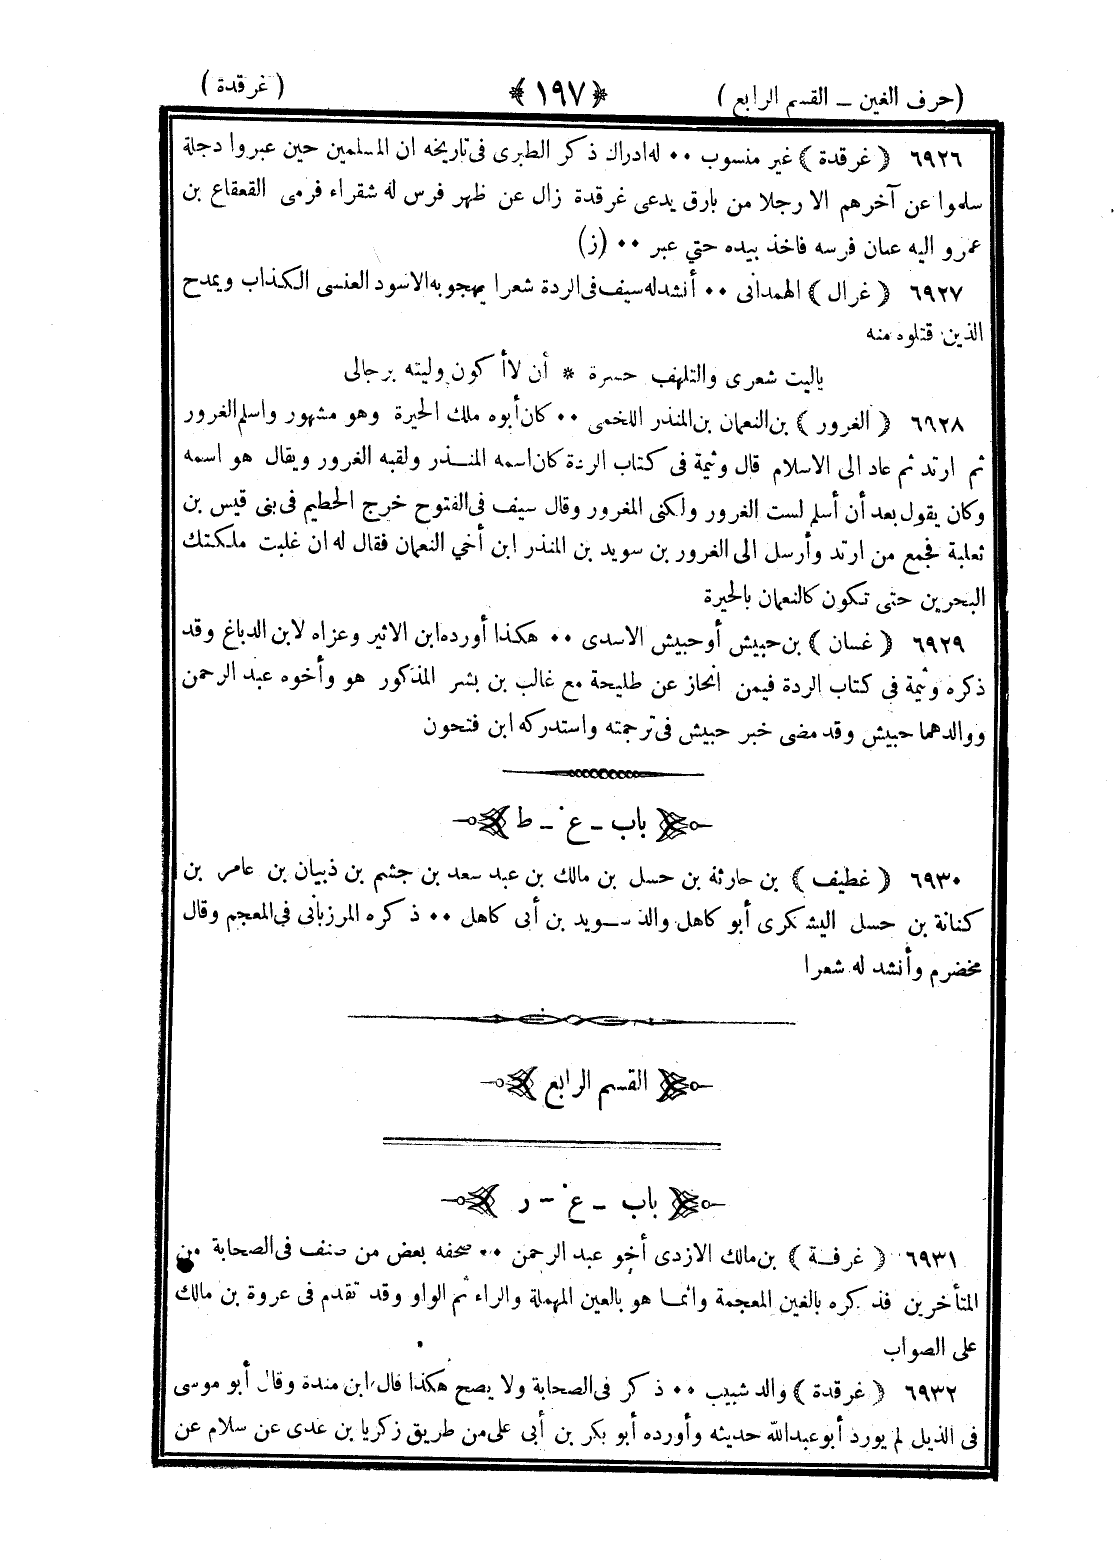 (حرف الغين ــ القسم الرابع) ﴿١٩٧﴾ (غرقدة)
٦٩٢٦ ﴿ غرقدة ﴾ غير منسوب ٠٠ له ادراك ذكر الطبرى فى تاريخه ان المسلمين حين عبروا دجلة
سلموا عن آخرهم الا رجلا من بارق يدعى غرقدة زال عن ظهر فرس له شقراء فرمى القعقاع بن
عمرو اليه عنان فرسه فاخذ بيده حتي عبر ٠٠ (ز)
٦٩٢٧ ﴿ غرال ﴾ الهمدانى ٠٠ أنشد له سيف فى الردة شعرا يهجو به الاسود العنسى الكذاب ويمدح
الذين قتلوه منه
ياليت شعرى والتلهف حسرة * أن لاأ كون وليته برجالى
٦٩٢٨ ﴿ الغرور ﴾ بن النعمان بن المنذر اللخمى ٠٠ كان أبوه ملك الحيرة وهو مشهور واسلم الغرور
ثم ارتد ثم عاد الى الاسلام قال وثيمة فى كتاب الردة كان اسمه المنـذر ولقبه الغرور ويقال هو اسمه
وكان يقول بعد أن أسلم لست الغرور ولكنى المغرور وقال سيف فى الفتوح خرج الحطيم فى بنى قيس بن
ثعلبة فجمع من ارتد وأرسل الى الغرور بن سويد بن المنذر ابن أخي النعمان فقال له ان غلبت ملكتك
البحرين حتى تكون كالنعمان بالحيرة
٦٩٢٩ ﴿ غسان ﴾ بن حبيش أو حبيش الاسدى ٠٠ هكذا أورده ابن الاثير وعزاه لابن الدباغ وقد
ذكره وثيمة فى كتاب الردة فيمن انحاز عن طليحة مع غالب بن بشر المذكور هو وأخوه عبد الرحمن
ووالدهما حبيش وقد مضى خبر حبيش فى ترجمته واستدركه ابن فتحون
باب ــ غ ــ ط
٦٩٣٠ ﴿ غطيف ﴾ بن حارثة بن حسل بن مالك بن عبد سعد بن جشم بن ذبيان بن عامر بن
كنانة بن حسل اليشكرى أبو كاهل والد سـويد بن أبى كاهل ٠٠ ذكره المرزبانى فى المعجم وقال
مخضرم وأنشد له شعرا
القسم الرابع
باب ــ غ ــ ر
٦٩٣١ ﴿ غرفـة ﴾ بن مالك الازدى أخو عبد الرحمن ٠٠ صحفه بعض من صنف فى الصحابة من
المتأخرين فذكره بالغين المعجمة وانما هو بالعين المهملة والراء ثم الواو وقد تقدم فى عروة بن مالك
على الصواب
٦٩٣٢ ﴿ غرقدة ﴾ والد شبيب ٠٠ ذكر فى الصحابة ولا يصح هكذا قال ابن مندة وقال أبو موسى
فى الذيل لم يورد أبو عبد الله حديثه وأورده أبو بكر بن أبى على من طريق زكريا بن عدى عن سلام عن